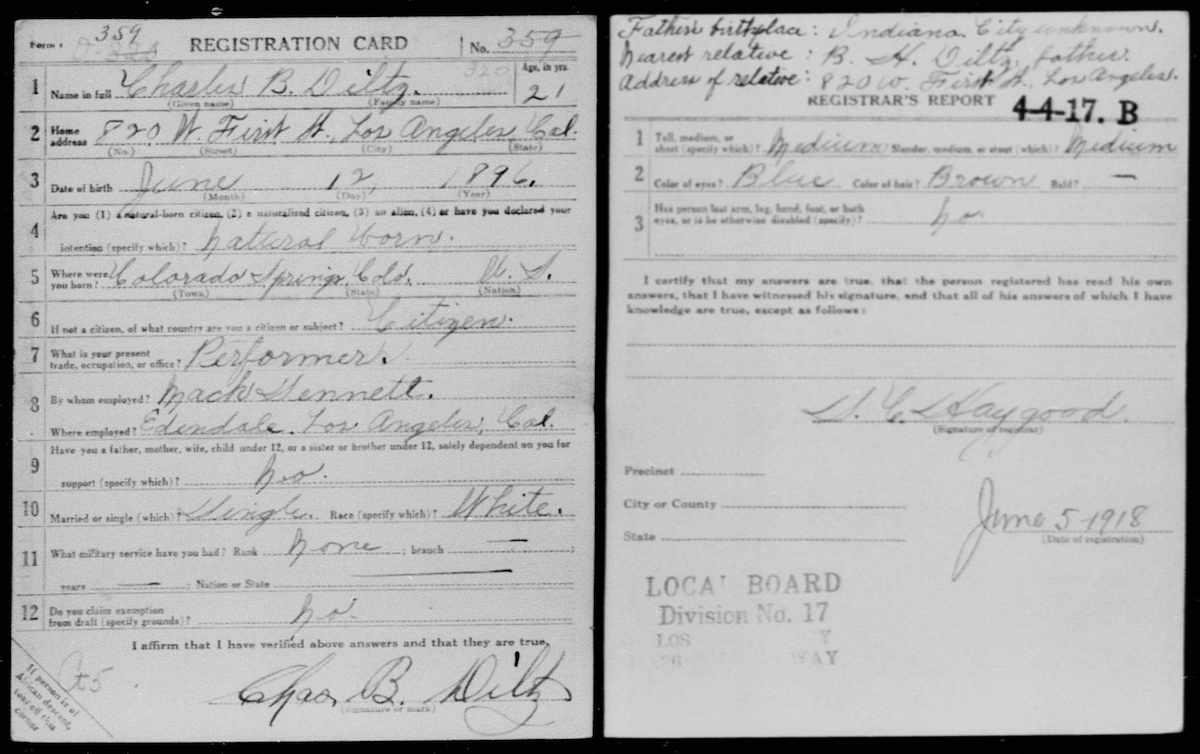 359
Form 1
REGISTRATION CARD No. 359
1 Name in full Charles B. Diltz. Age, in yrs. 21
(Given name) (Family name)
2 Home address 820 W. First St, Los Angeles Cal.
(No.) (Street) (City) (State)
3 Date of birth June 12, 1896.
(Month) (Day) (Year)
Are you (1) a natural-born citizen, (2) a naturalized citizen, (3) an alien, (4) or have you declared your
4 intention (specify which)? Natural born.
5 Where were you born? Colorado Springs Colo. U. S.
(Town) (State) (Nation)
6 If not a citizen, of what country are you a citizen or subject? Citizen.
7 What is your present trade, occupation, or office? Performer.
8 By whom employed? Mack Sennett.
Where employed? Edendale. Los Angeles, Cal.
Have you a father, mother, wife, child under 12, or a sister or brother under 12, solely dependent on you for
9 support (specify which)? No.
10 Married or single (which)? Single. Race (specify which)? White.
11 What military service have you had? Rank None ; branch — ;
years — ; Nation or State
12 Do you claim exemption from draft (specify grounds)? No.
I affirm that I have verified above answers and that they are true.
Chas B. Diltz
(Signature or mark)
If person is of
African descent,
tear off this
corner
Father's birthplace: Indiana. City unknown.
Nearest relative: B. H. Diltz, father.
Address of relative: 820 W. First St, Los Angeles.
REGISTRAR'S REPORT 4-4-17. B
1 Tall, medium, or short (specify which)? Medium Slender, medium, or stout (which)? Medium
2 Color of eyes? Blue Color of hair? Brown Bald? —
3 Has person lost arm, leg, hand, foot, or both eyes, or is he otherwise disabled (specify)? No.
I certify that my answers are true, that the person registered has read his own
answers, that I have witnessed his signature, and that all of his answers of which I have
knowledge are true, except as follows:
Haygood
(Signature of registrar)
Precinct
City or County
State
June 5 1918
(Date of registration)
LOCAL BOARD
Division No. 17
LOS
WAY